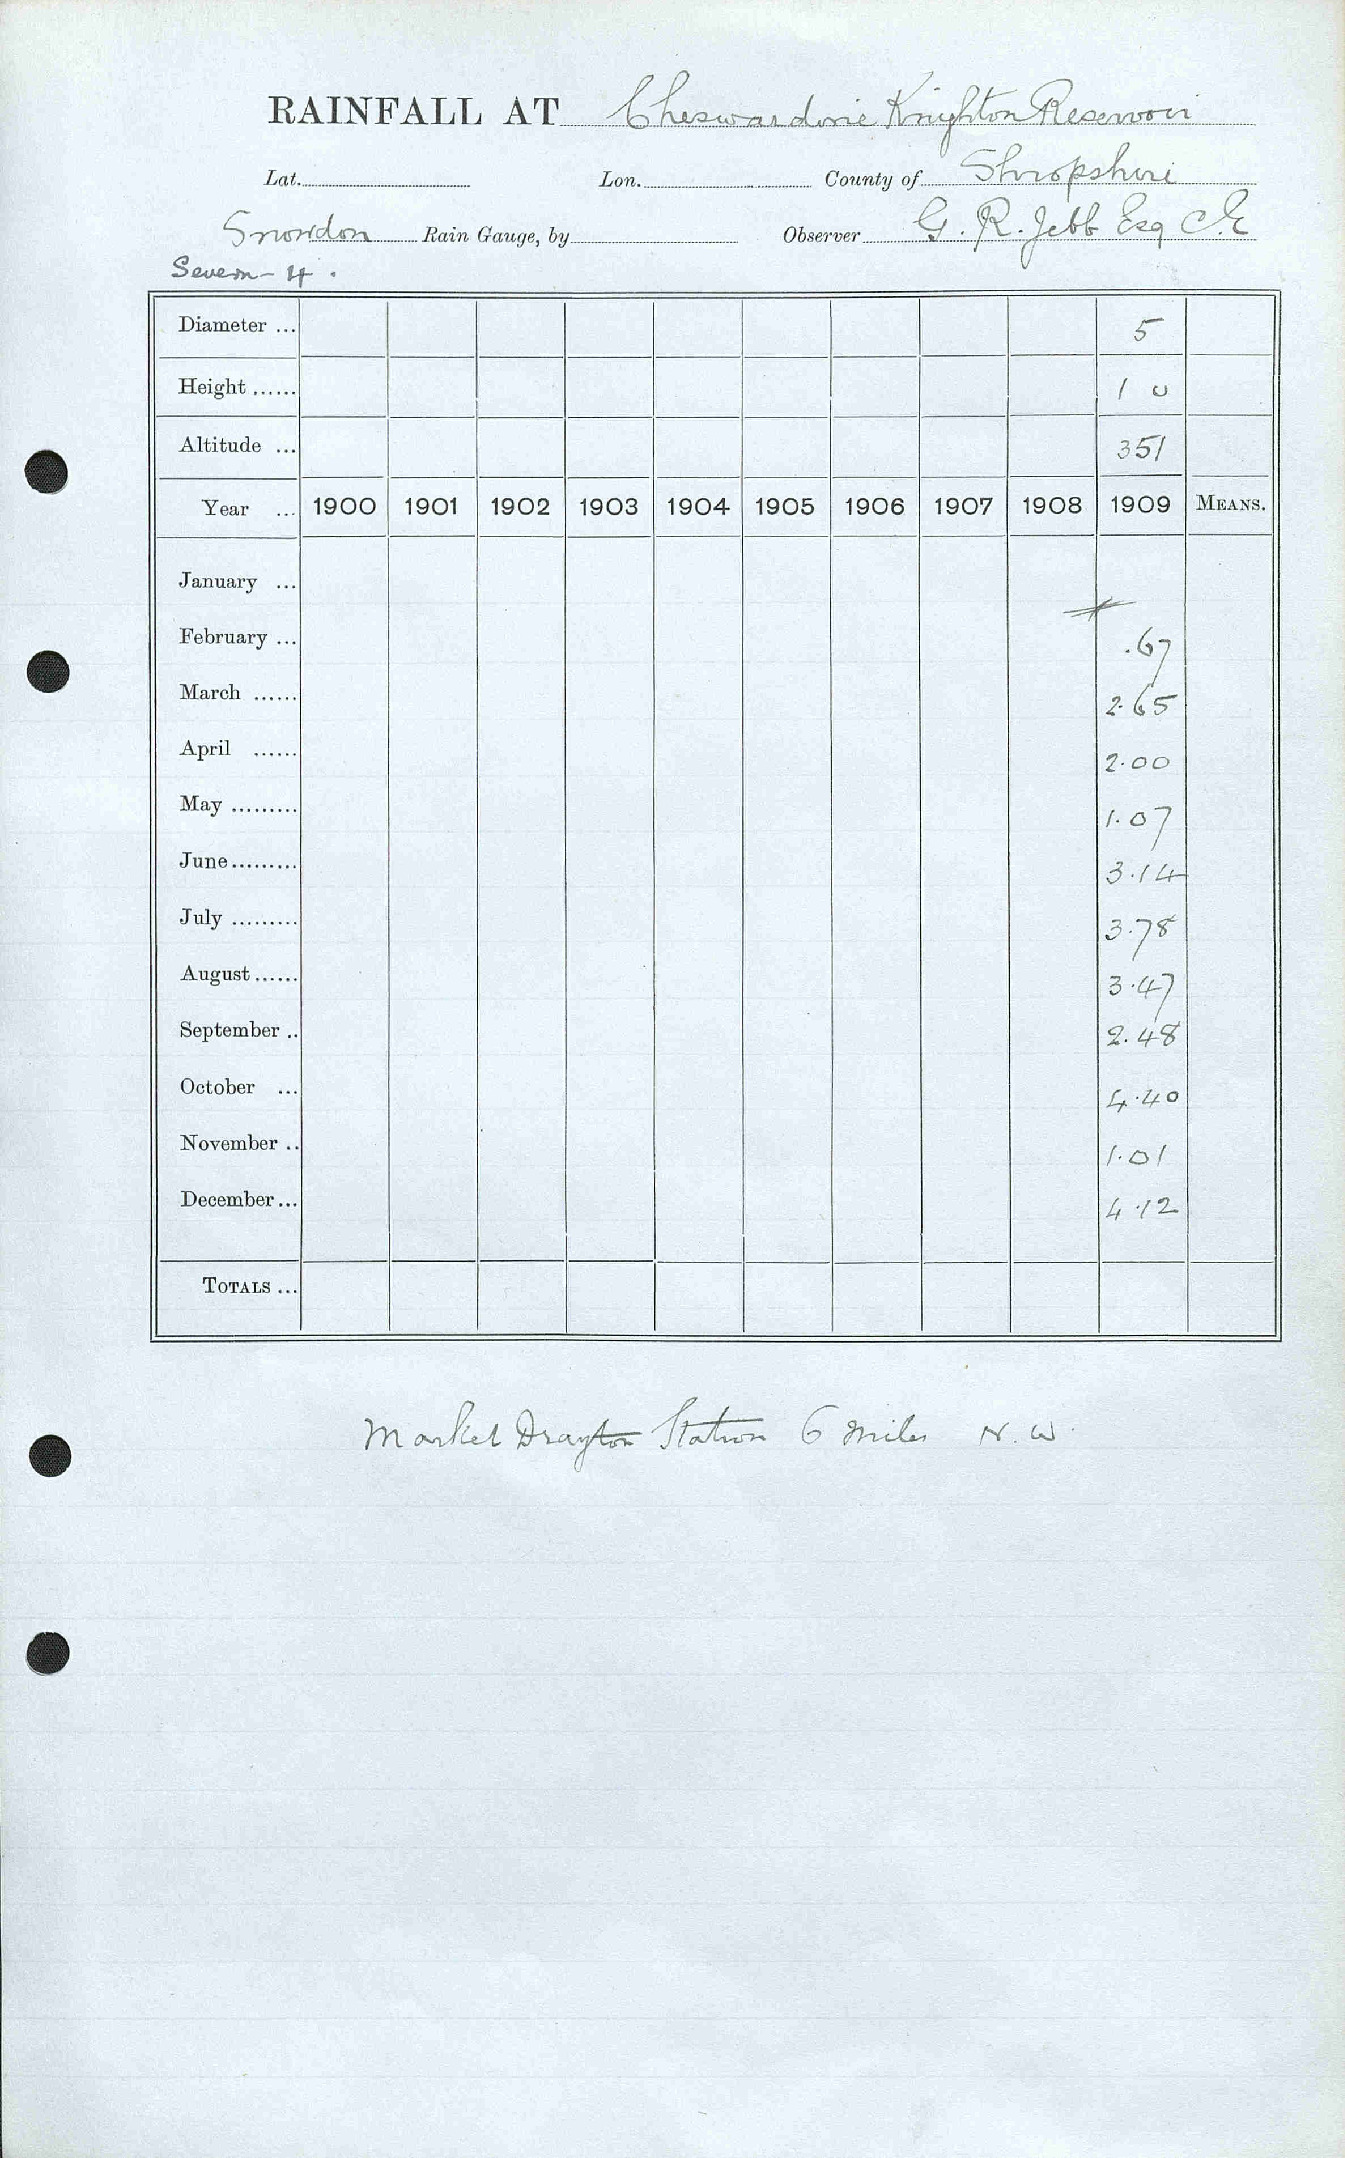 RAINFALL AT Cheswardine Knighton Reservoir
Lat. Lon. County of Shropshire
Snowdon Rain Gauge, by Observer G. R. Jebb Esq C.E
Severn - 4.
Diameter ... 5
Height ...... 1 0
Altitude ... 351
Year ... 1900 1901 1902 1903 1904 1905 1906 1907 1908 1909 MEANS.
January ...
February ... .67
March ...... 2.65
April ...... 2.00
May ......... 1.07
June ......... 3.14
July ......... 3.78
August ...... 3.47
September .. 2.48
October ... 4.40
November .. 1.01
December ... 4.12
TOTALS ...
Market Drayton Station 6 miles N.W.